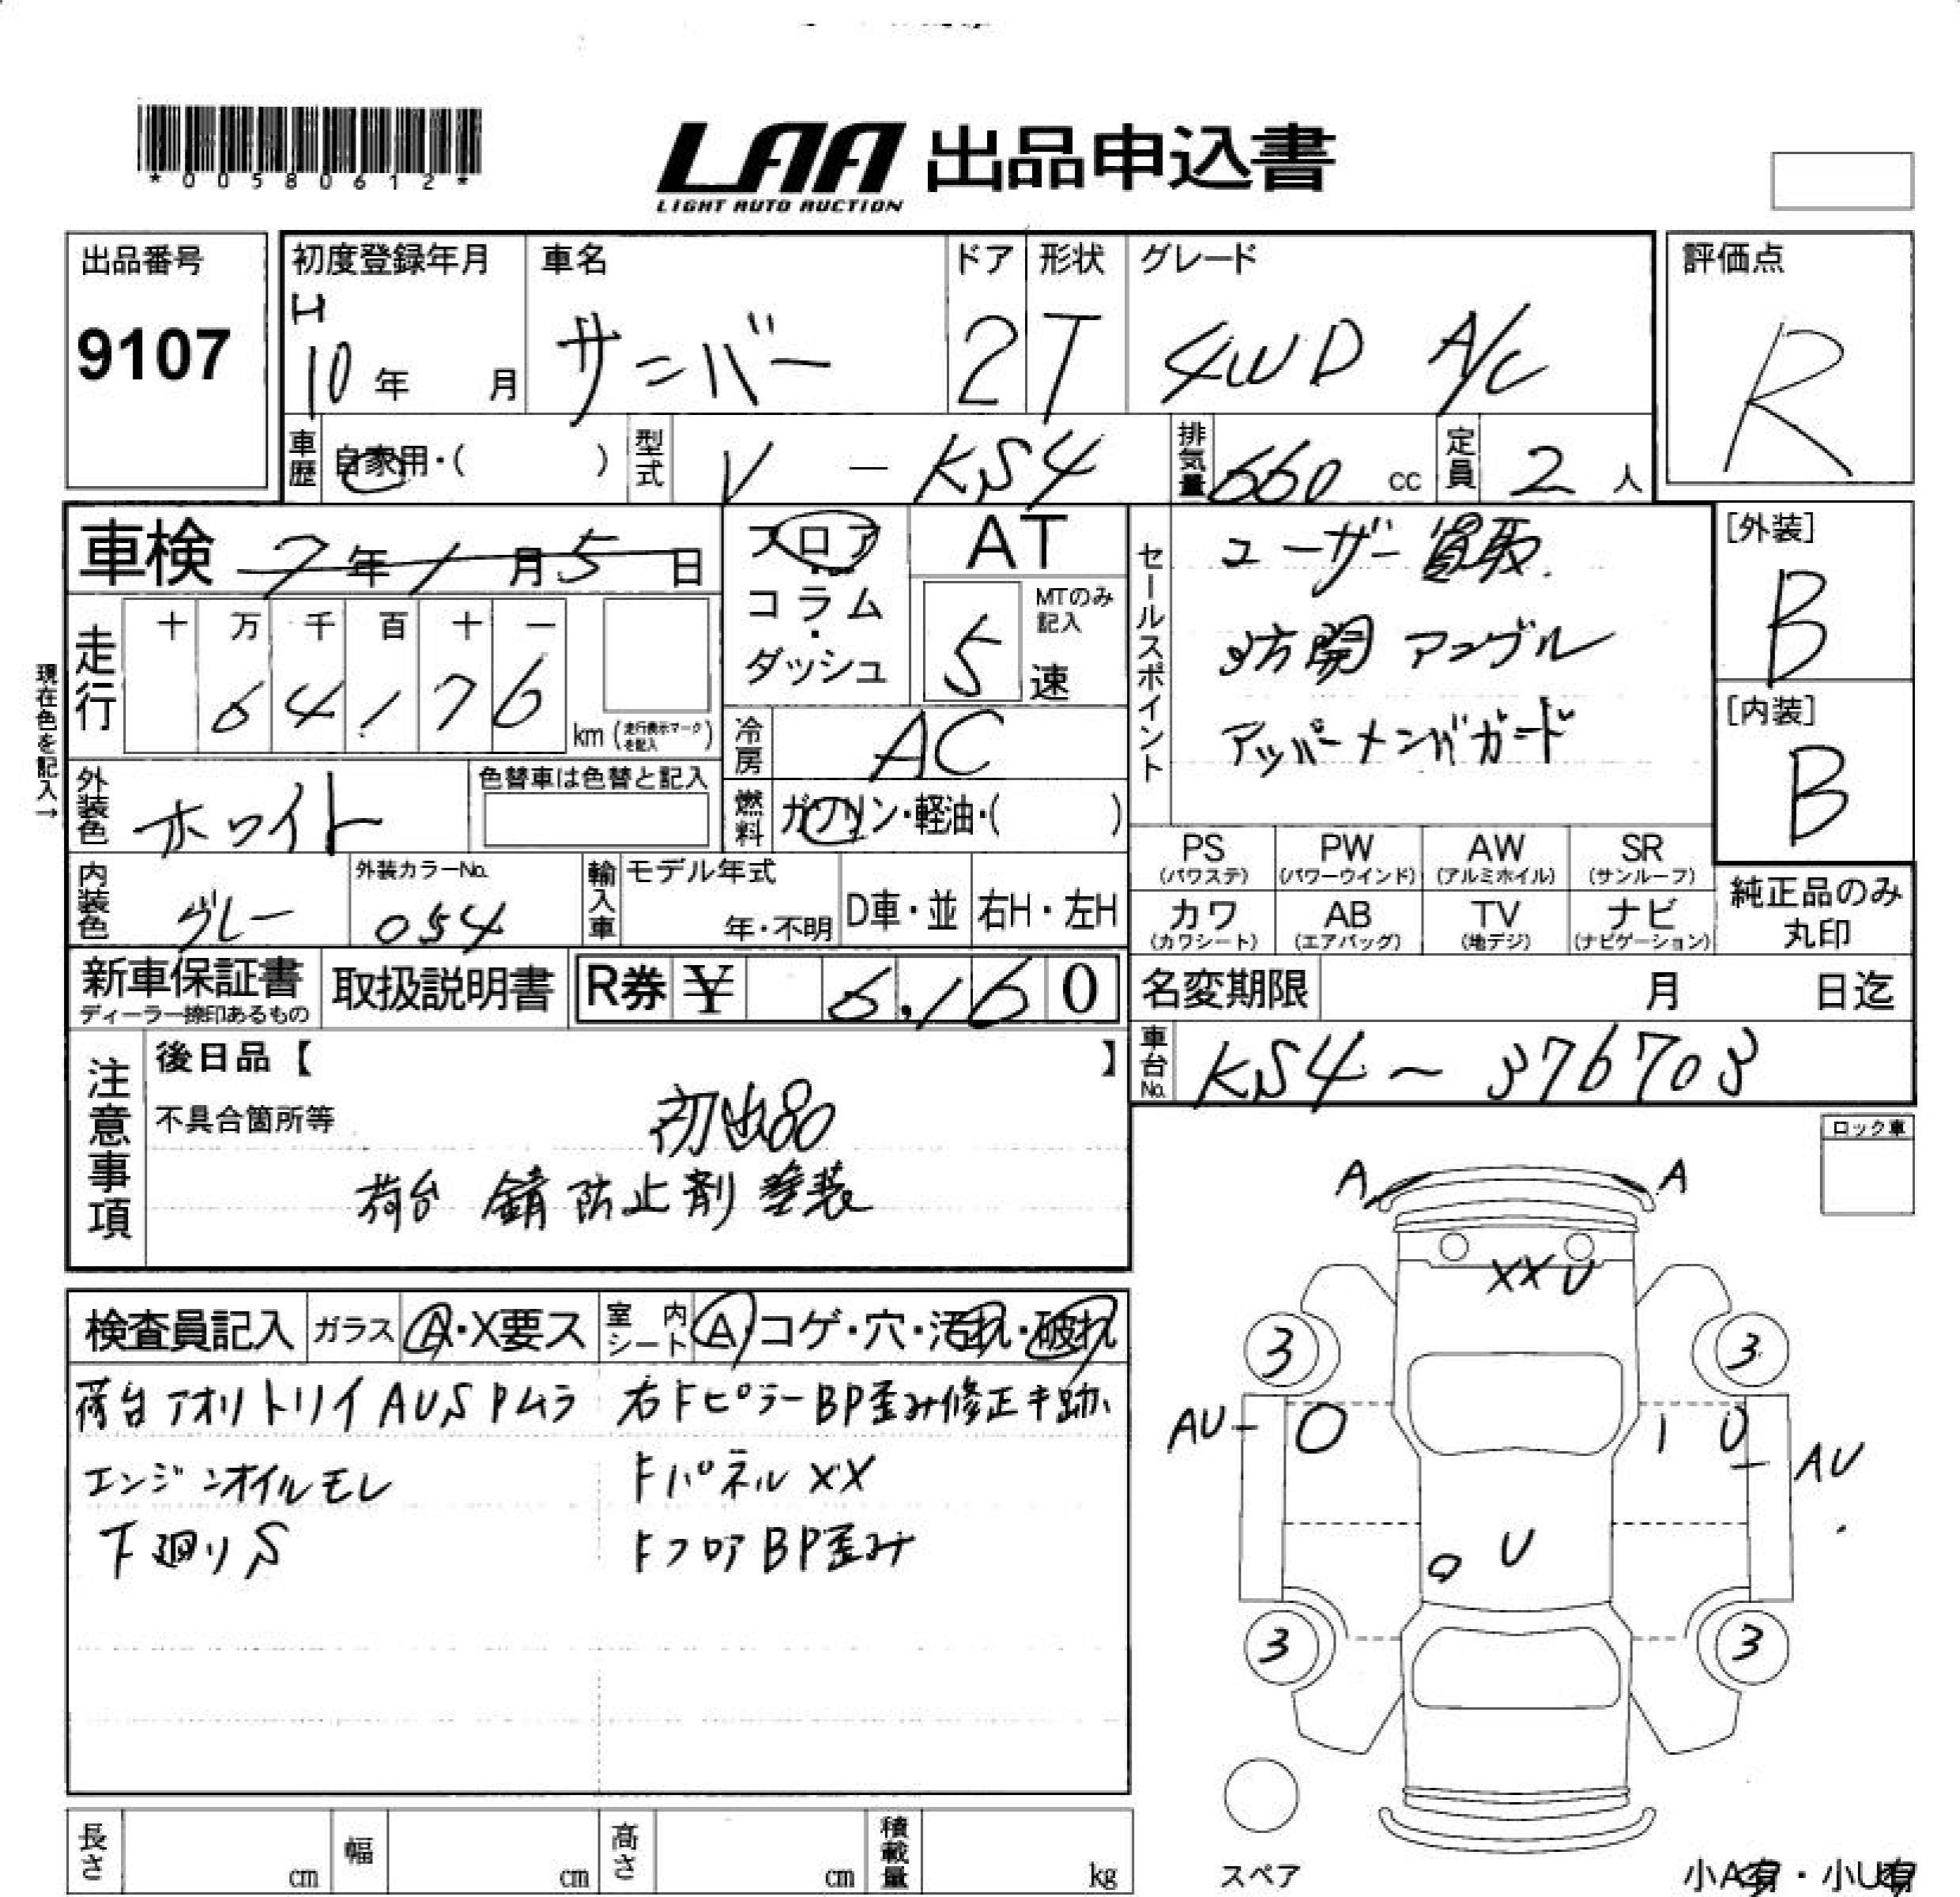 *00580612*
LAA 出品申込書
LIGHT AUTO AUCTION
出品番号
9107
初度登録年月
H
10年 月
車名
サンバー
ドア
2
形状
T
グレード
4WD A/C
評価点
R
車歴 自家用・( )
型式 V - KS4
排気量 660 cc
定員 2 人
車検 7年1月5日
フロア・
コラム・
ダッシュ
AT
5
MTのみ記入
速
セールスポイント
ユーザー買取
3方開 アングル
アッパーメンバガード
[外装]
B
[内装]
B
現在色を記入→
走行
十 万 千 百 十 一
6 4 1 7 6
km (走行表示マークを記入)
冷房 AC
外装色 ホワイト
色替車は色替と記入
燃料 ガソリン・軽油・( )
内装色 グレー
外装カラーNo.
054
輸入車
モデル年式
年・不明
D車・並
右H・左H
PS
(パワステ)
PW
(パワーウインド)
AW
(アルミホイル)
SR
(サンルーフ)
カワ
(カワシート)
AB
(エアバッグ)
TV
(地デジ)
ナビ
(ナビゲーション)
純正品のみ
丸印
新車保証書
ディーラー捺印あるもの
取扱説明書
R券 ¥ 6,160
名変期限 月 日迄
車台No. KS4~376703
注意事項
後日品【 】
不具合箇所等
初出品
荷台 錆防止剤塗装
ロック車
検査員記入
ガラス A・X要ス
室内シート A・コゲ・穴・汚れ・破れ
荷台アオリトリイAUSPムラ
エンジンオイルモレ
下廻りS
右FピラーBP歪み修正キ跡
FパネルXX
FフロアBP歪み
A A
XX U
3 3
AU 0 1 U AU
U
3 3
スペア
小A有・小U有
長さ cm
幅 cm
高さ cm
積載量 kg